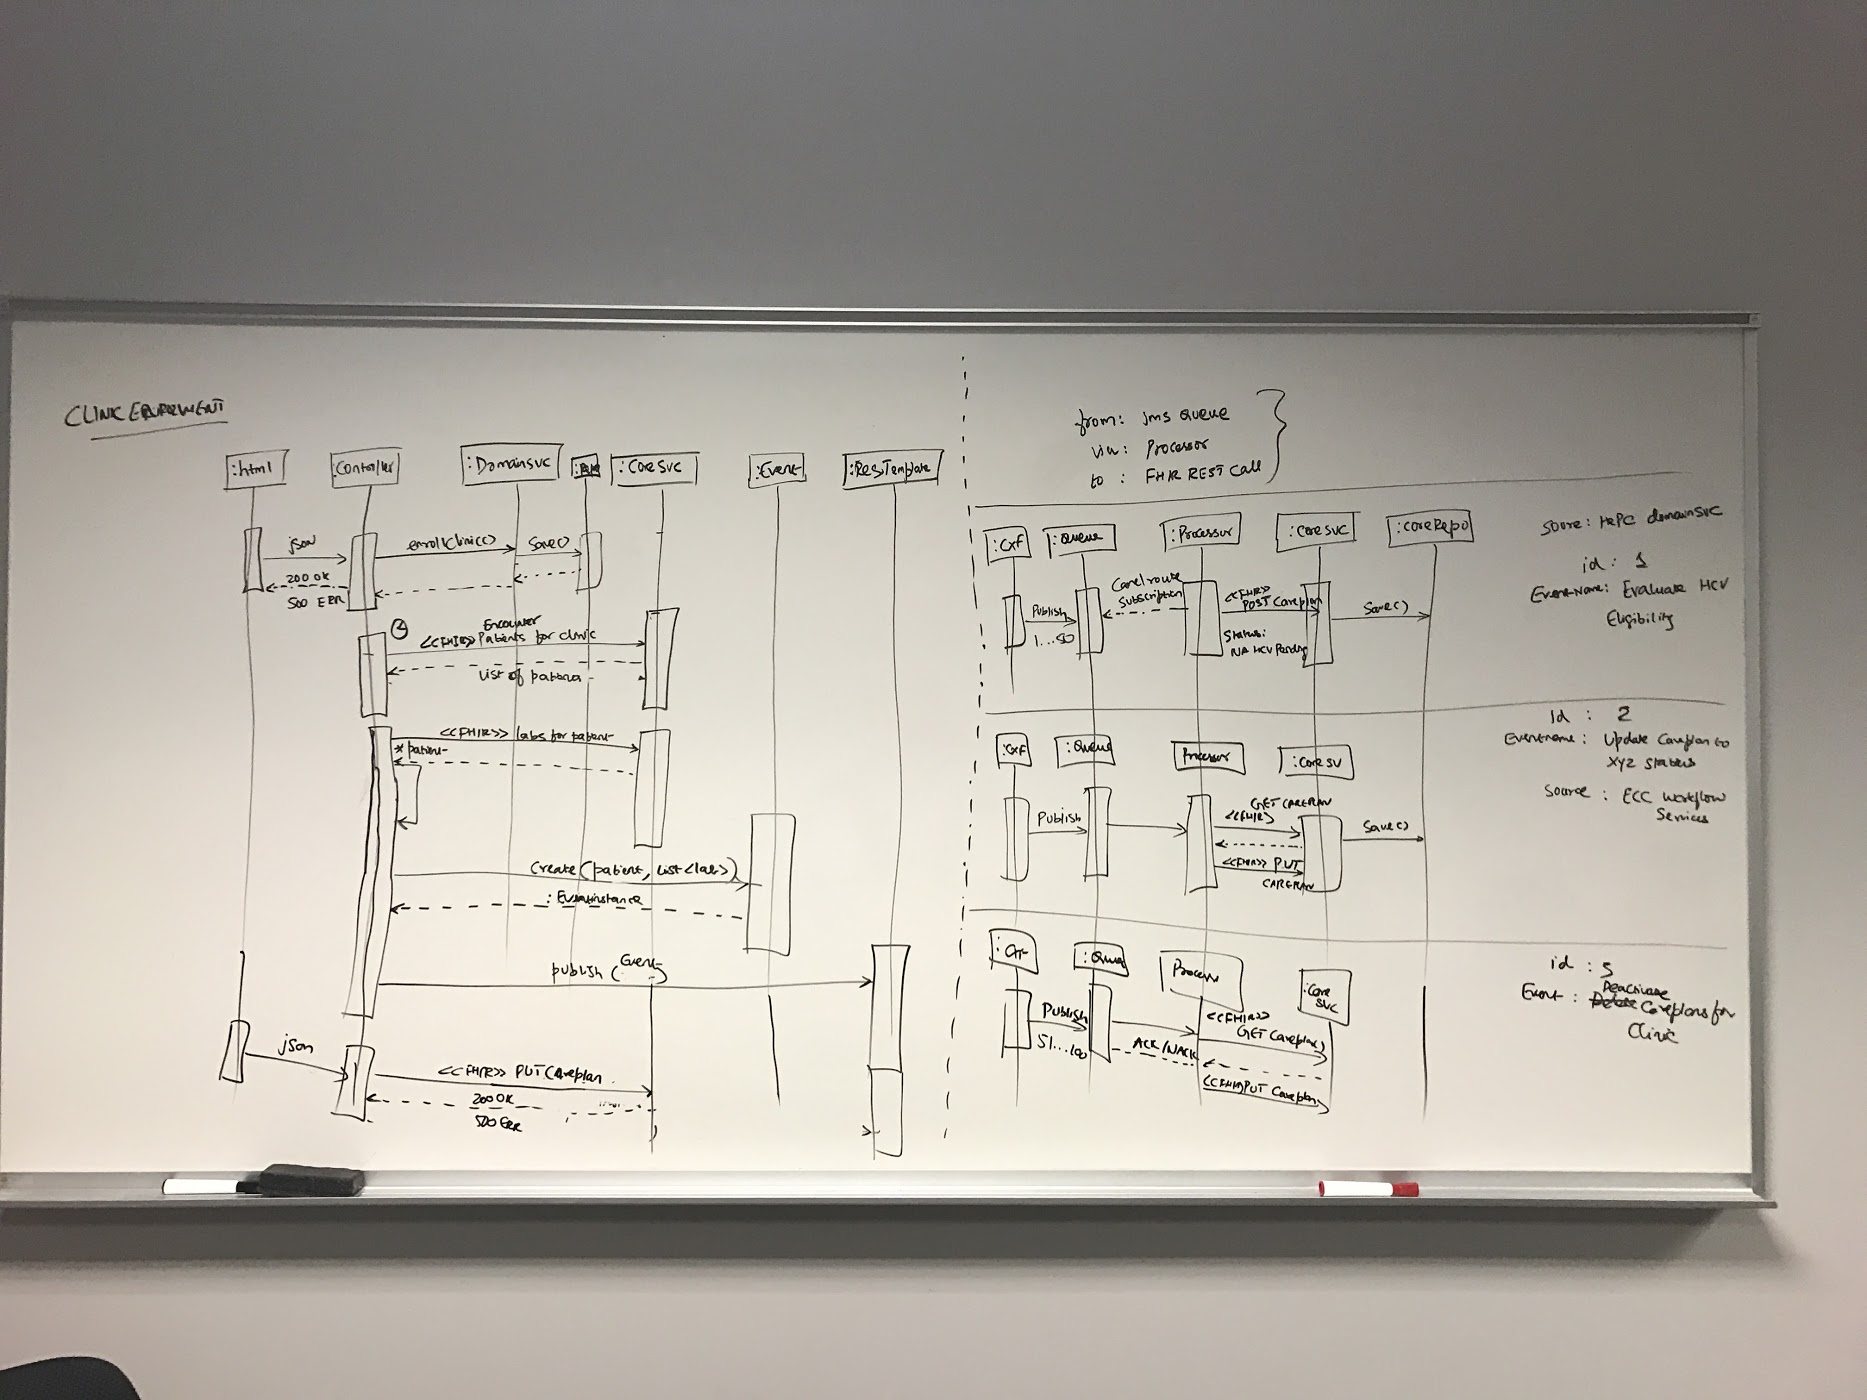 :html
:Controller
:DomainSvc
:CoreSvc
:Event
:RestTemplate
json
enrollClinic()
save()
200 OK
500 ERR
Encounter
<<FHIR>> Patients for clinic
List of patients
<<FHIR>> labs for patient
* patient
Create(patient, List<labs>)
: EventInstance
publish (Event)
json
<<FHIR>> PUT Careplan
200 OK
500 ERR
from: jms Queue
via: Processor
to : FHIR REST Call
:Cxf
:Queue
:Processor
:CoreSvc
:CoreRepo
Publish
1...50
Camel route
Subscription
<<FHIR>>
POST Careplan
Status:
NA HCV Pending
Save()
Source: HepC domainSvc
id : 1
EventName: Evaluate HCV
Eligibility
:Cxf
:Queue
Processor
:CoreSv
Publish
GET CAREPLAN
<<FHIR>>
<<FHIR>> PUT
CAREPLAN
Save()
Id : 2
Eventname : Update Careplan to
XYZ status
Source : ECC Workflow
Services
:Queue
:Core
Svc
Publish
51...100
ACK/NACK
<<FHIR>>
GET Careplan()
<<FHIR>> PUT Careplan
id :
Deactivate
Event : Delete Careplans for
Clinic